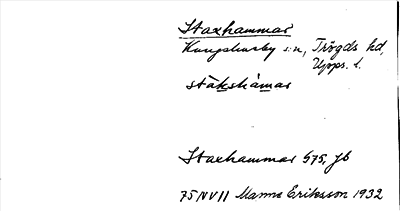 Staxhammar
Kungshusby sn, Trögds hd,
Upps. l.
stàkshámar
Staxhammar 575, Jb
75NV11 Manne Eriksson 1932